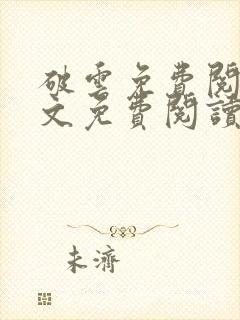 破雲免費閱
文免費閱讀
未濟